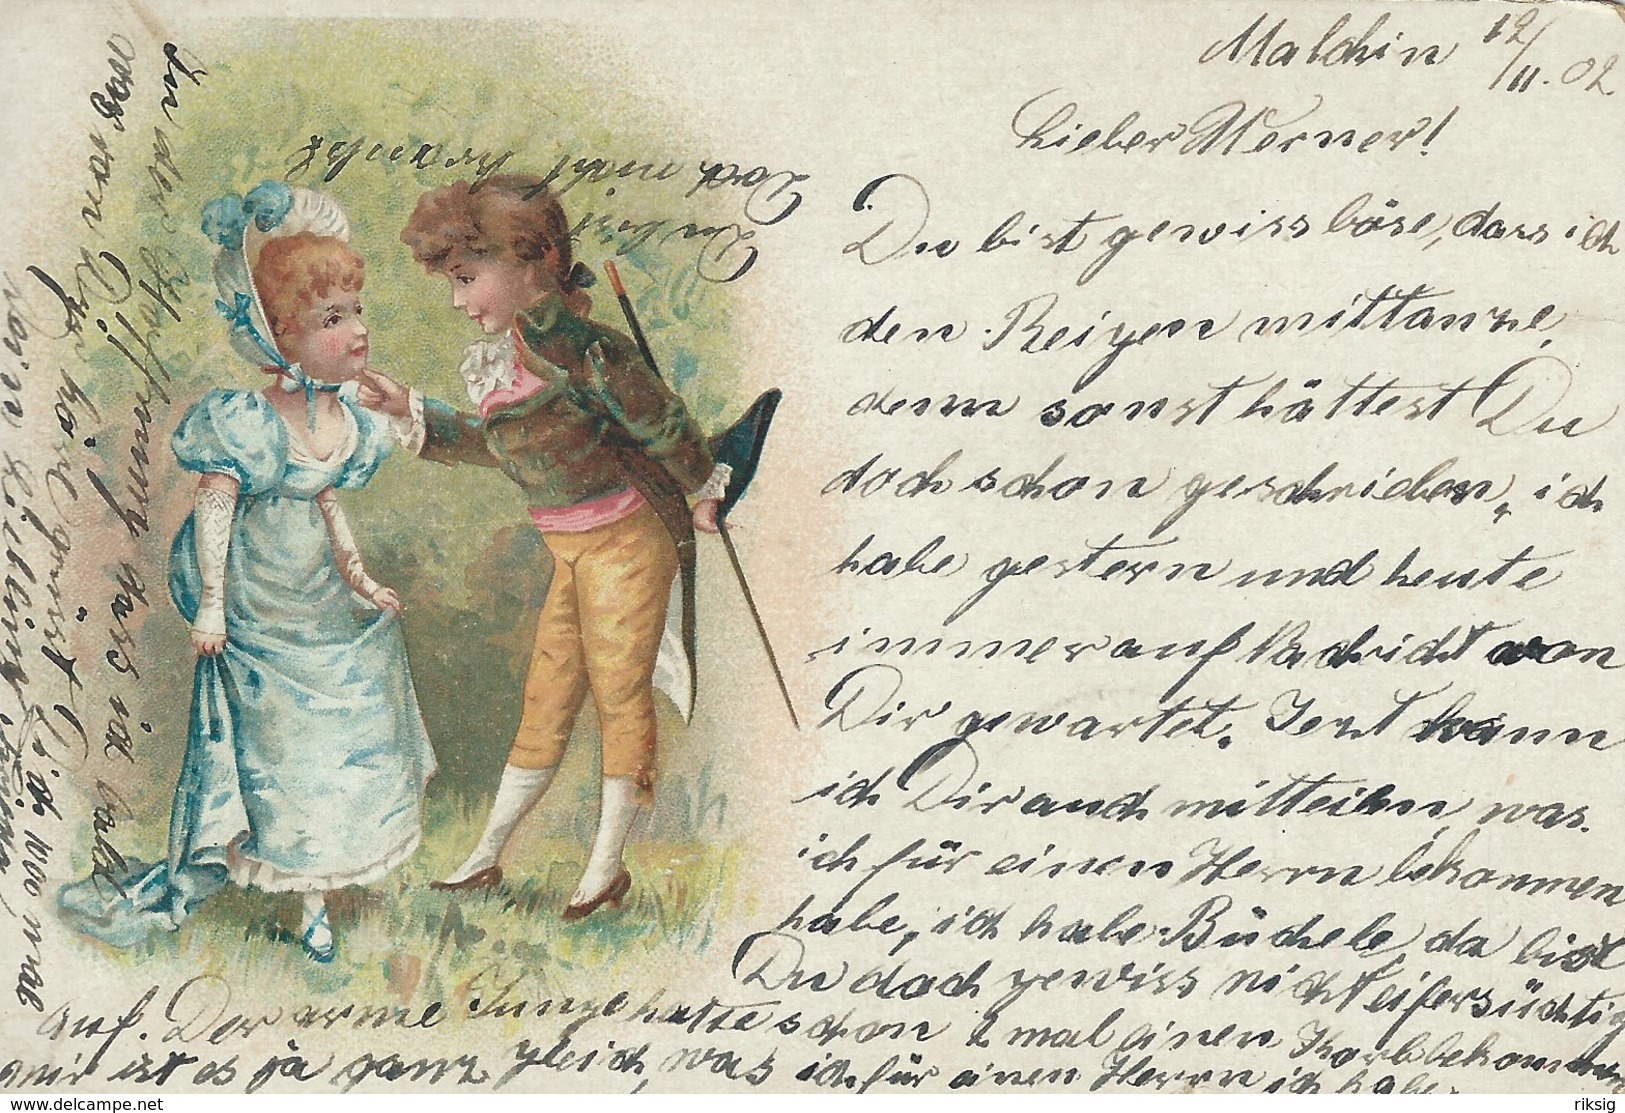 Malchin 12/11.02.
Lieber Werner!
Du bist gewiss böse, dass ich
den Reigen mittanze,
denn sonst hättest Du
doch schon geschrieben, ich
habe gestern und heute
immer auf Nachricht von
Dir gewartet. Jetzt kann
ich Dir auch mitteilen, was
ich für einen Herrn bekommen
habe, ich habe Büchele, da bist
Du doch gewiss nicht eifersüchtig
auf. Der arme Junge hatte schon 2 mal einen Korb bekommen
mir ist es ja ganz gleich, was ich für einen Herrn ich habe.
In der Hoffnung dass ich bald
was von Dir höre grüsst Dich
Du bist
doch nicht krank?
riksig